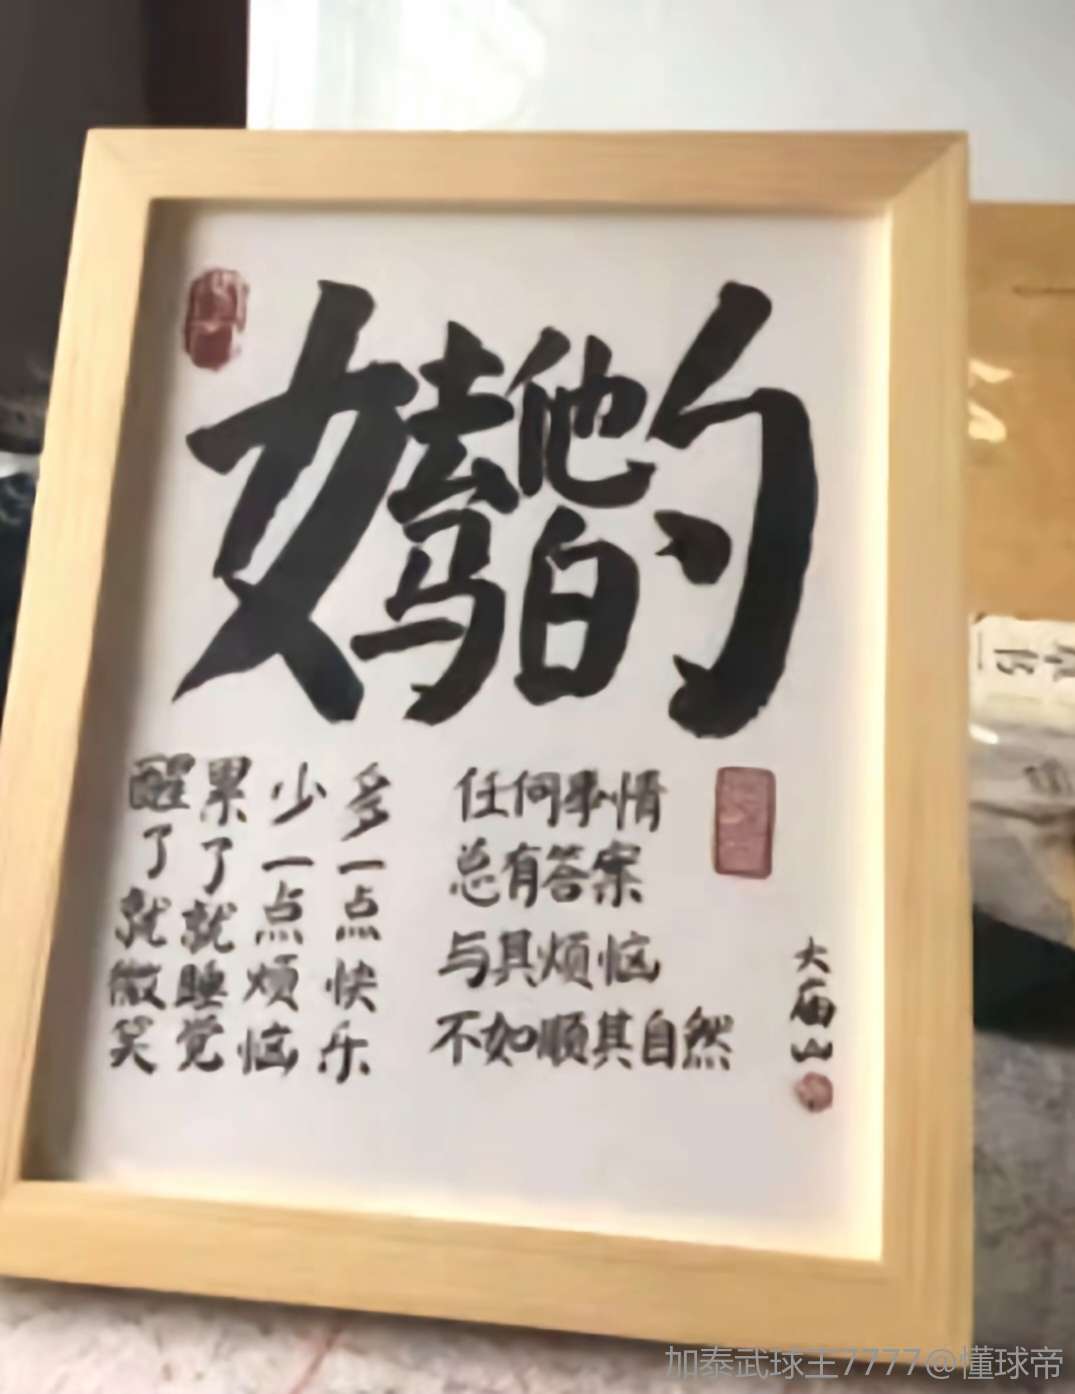 去他妈的
任何事情
总有答案
与其烦恼
不如顺其自然
多一点快乐
少一点烦恼
累了就睡觉
醒了就微笑
大庙山
加泰武球王7777@懂球帝